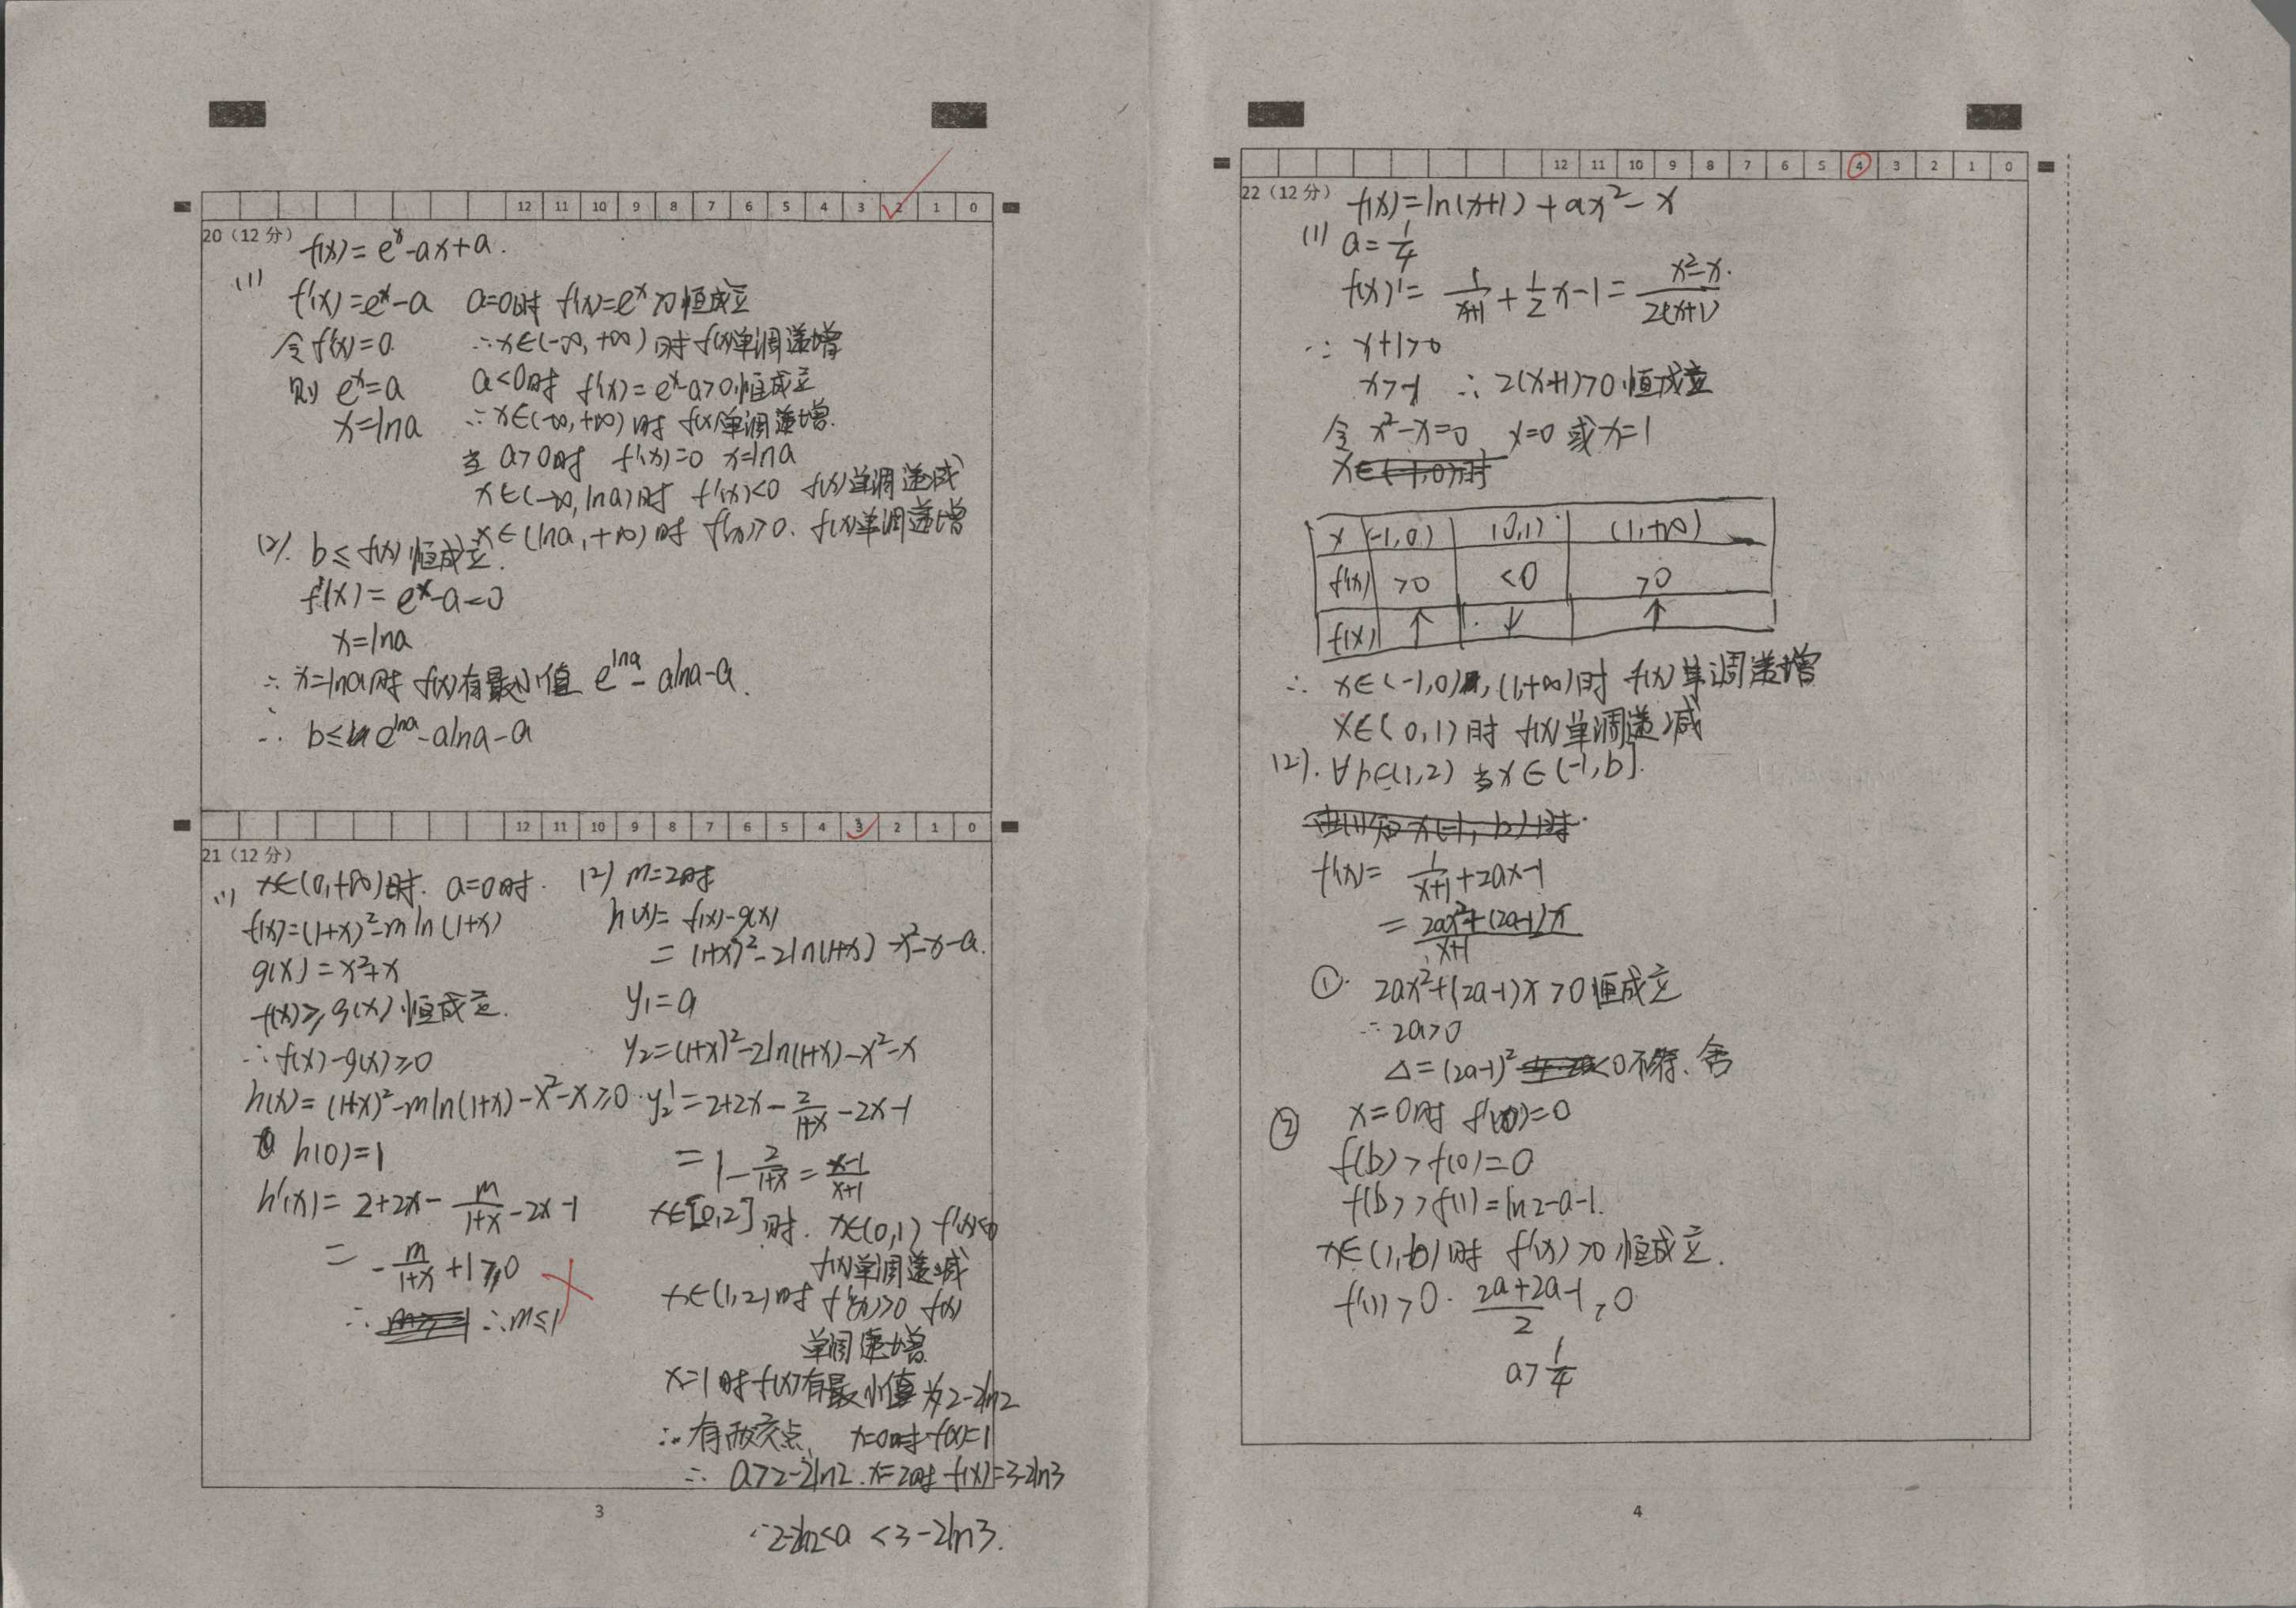 12 11 10 9 8 7 6 5 4 3 2 1 0
20（12 分） f(x)=e^x-ax+a.
(1)
f'(x)=e^x-a
令f'(x)=0
则 e^x=a
x=lna
a=0时 f'(x)=e^x>0恒成立
∴x∈(-∞,+∞)时 f(x)单调递增
a<0时 f'(x)=e^x-a>0恒成立
∴x∈(-∞,+∞)时 f(x)单调递增.
当 a>0时 f'(x)=0 x=lna
x∈(-∞,lna)时 f'(x)<0 f(x)单调递减
x∈(lna,+∞)时 f'(x)>0. f(x)单调递增
(2). b≤f(x)恒成立.
f'(x)=e^x-a=0
x=lna
∴x=lna时 f(x)有最小值 e^lna-alna-a.
∴ b≤e^lna-alna-a
12 11 10 9 8 7 6 5 4 3 2 1 0
21（12 分）
(1) x∈(0,+∞)时. a=0时.
f(x)=(1+x)²-mln(1+x)
g(x)=x²+x
f(x)≥g(x)恒成立.
∴f(x)-g(x)≥0
h(x)=(1+x)²-mln(1+x)-x²-x≥0
h(0)=1
h'(x)=2+2x-m/(1+x)-2x-1
=-m/(1+x)+1≥0
∴ ∴m≤1
(2) m=2时
h(x)=f(x)-g(x)
=(1+x)²-2ln(1+x)-x²-x-a.
y₁=a
y₂=(1+x)²-2ln(1+x)-x²-x
y₂'=2+2x-2/(1+x)-2x-1
=1-2/(1+x)=(x-1)/(x+1)
x∈[0,2]时. x∈(0,1) f'(x)<0
f(x)单调递减
x∈(1,2)时 f'(x)>0 f(x)
单调递增
x=1时f(x)有最小值为2-2ln2
∴有两交点, x=0时f(x)=1
∴ a>2-2ln2. x=2时 f(x)=3-2ln3
∴2-2ln2<a<3-2ln3.
3
12 11 10 9 8 7 6 5 4 3 2 1 0
22（12 分） f(x)=ln(x+1)+ax²-x
(1) a=1/4
f(x)'=1/(x+1)+1/2x-1=(x²-x)/(2(x+1))
∵ x+1>0
x>-1 ∴2(x+1)>0恒成立
令 x²-x=0 x=0 或x=1
x∈(-1,0)时
x (-1,0) (0,1) (1,+∞)
f'(x) >0 <0 >0
f(x) ↑ ↓ ↑
∴ x∈(-1,0),(1,+∞)时 f(x)单调递增
x∈(0,1)时 f(x)单调递减
(2). ∀b∈(1,2) 当x∈(-1,b].
f'(x)=1/(x+1)+2ax-1
=(2ax²+(2a-1)x)/(x+1)
①. 2ax²+(2a-1)x>0恒成立
∴2a>0
Δ=(2a-1)²<0不符、舍
② x=0时 f'(0)=0
f(b)>f(0)=0
f(b)>f(1)=ln2-a-1.
x∈(1,b)时 f'(x)>0恒成立.
f'(1)>0. (2a+2a-1)/2>0
a>1/4
4